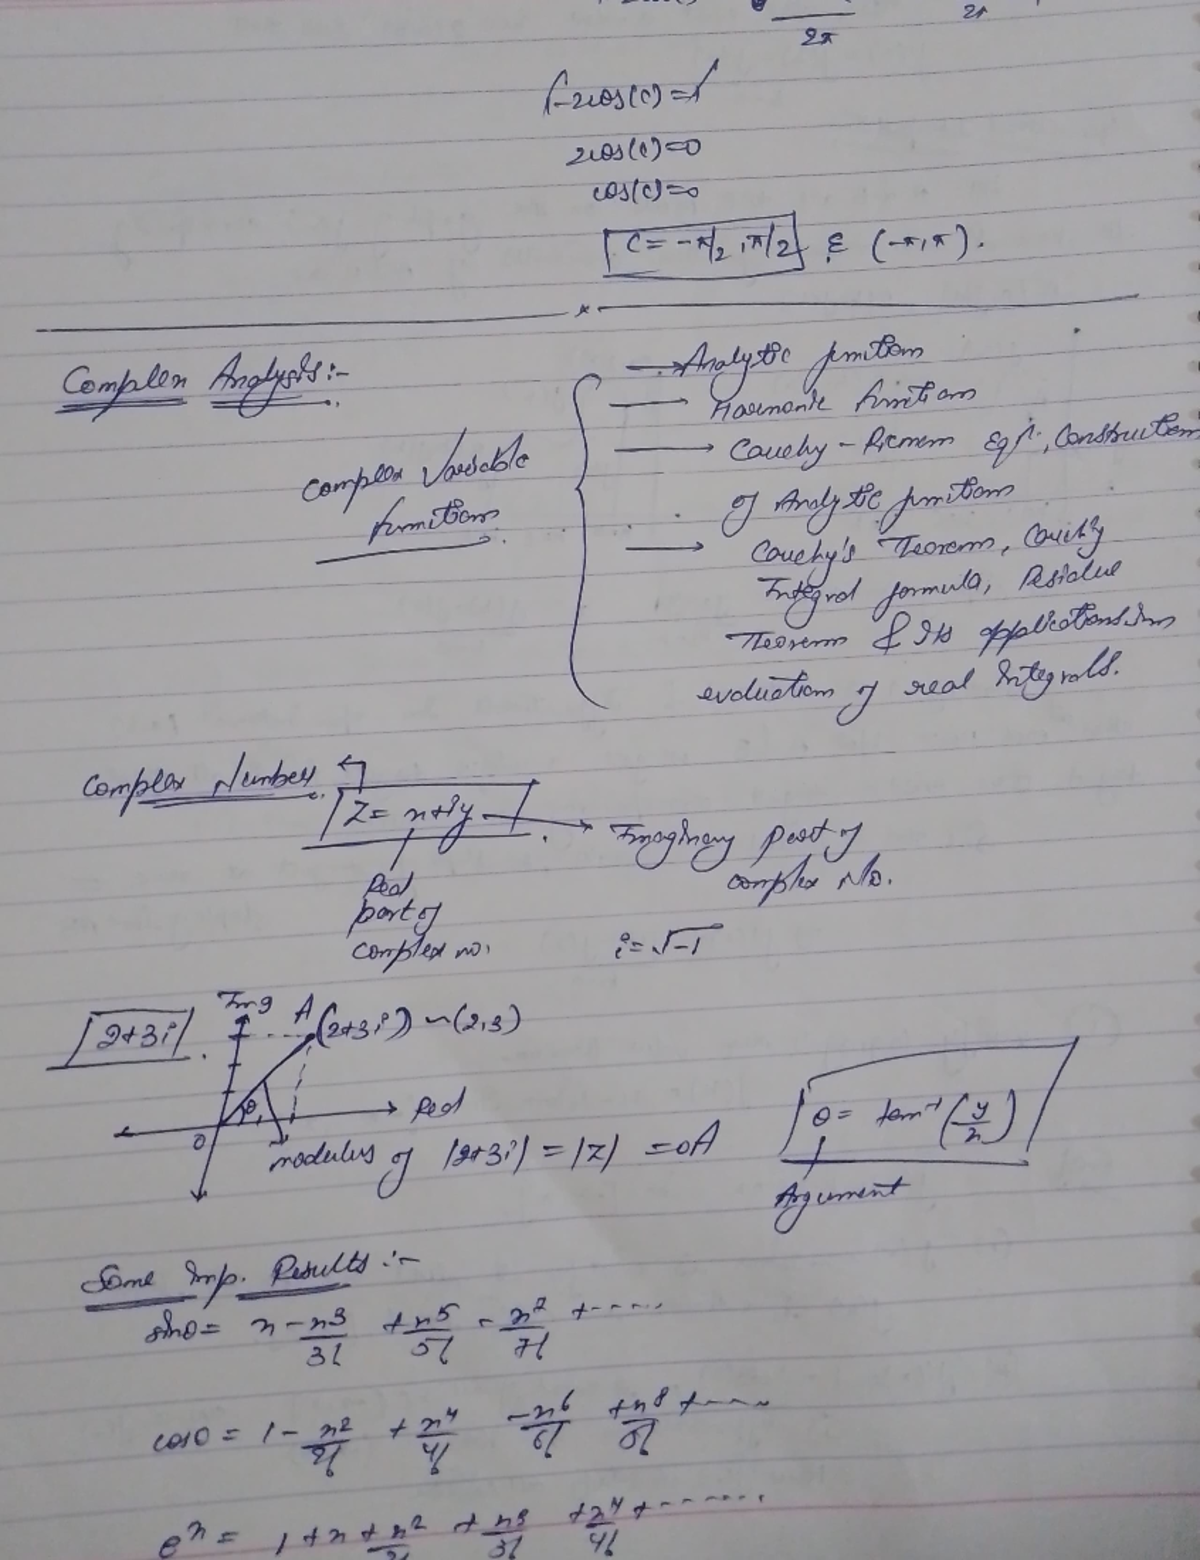 2π 2π
1-2cos(c)=1
2cos(c)=0
cos(c)=0
c = -π/2, π/2 ε (-π, π).
Complex Analysis:-
Complex Variable
functions.
→ Analytic functions
→ Harmonic functions
→ Cauchy-Riemann Eqn., Construction
of Analytic functions
→ Cauchy's Theorem, Cauchy
Integral formula, Residue
Theorem & its applications in
evaluation of real Integrals.
Complex Number.
Z = x+iy → Imaginary part of
complex No.
Real
part of
complex no.
i = √-1
2+3i. Img A (2+3i) ~ (2,3)
θ Real
O
modulus of |2+3i| = |Z| = OA
θ = tan⁻¹(y/x)
Argument
Some Imp. Results:-
sinθ = x - x³/3! + x⁵/5! - x⁷/7! + ----
cosθ = 1 - x²/2! + x⁴/4! - x⁶/6! + x⁸/8! + ----
eˣ = 1 + x + x²/2! + x³/3! + x⁴/4! + ------